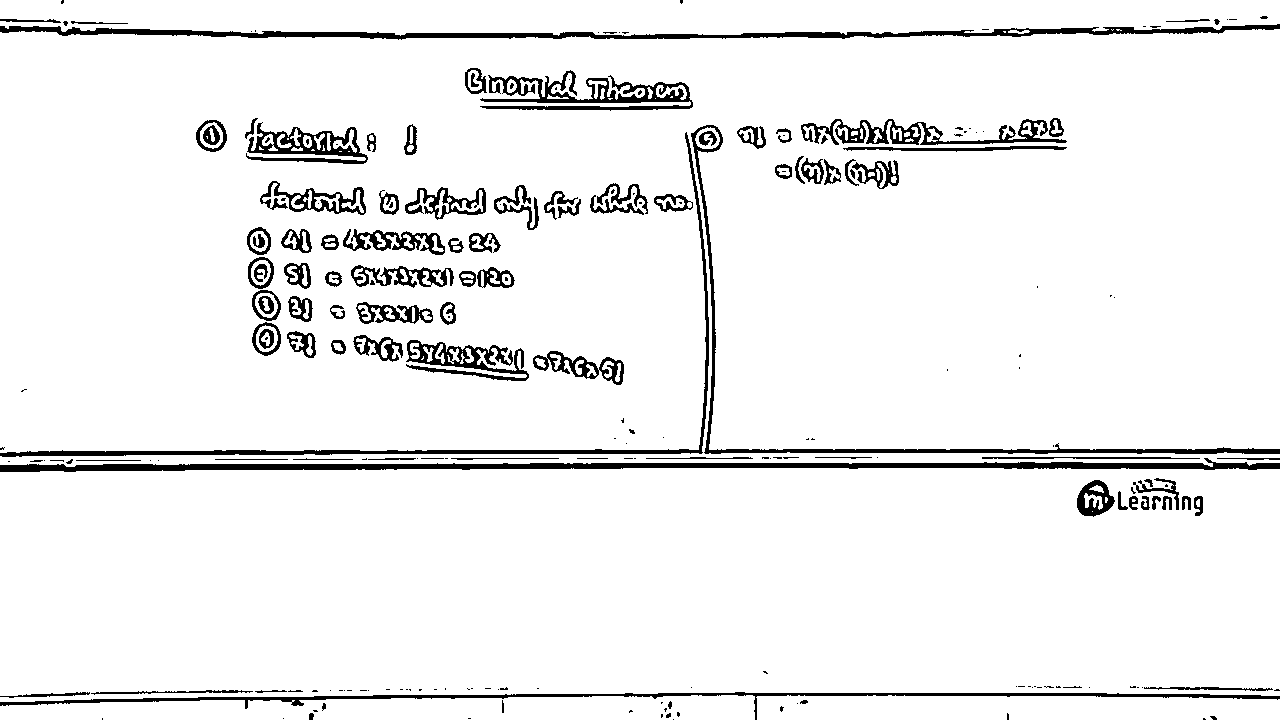 Binomial Theorem
① factorial : !
factorial is defined only for whole no.
① 4! = 4x3x2x1 = 24
② 5! = 5x4x3x2x1 = 120
③ 3! = 3x2x1 = 6
④ 7! = 7x6x 5x4x3x2x1 = 7x6x5!
⑤ n! = nx(n-1)x(n-2)x - - - x2x1
= (n)x (n-1)!
m Learning